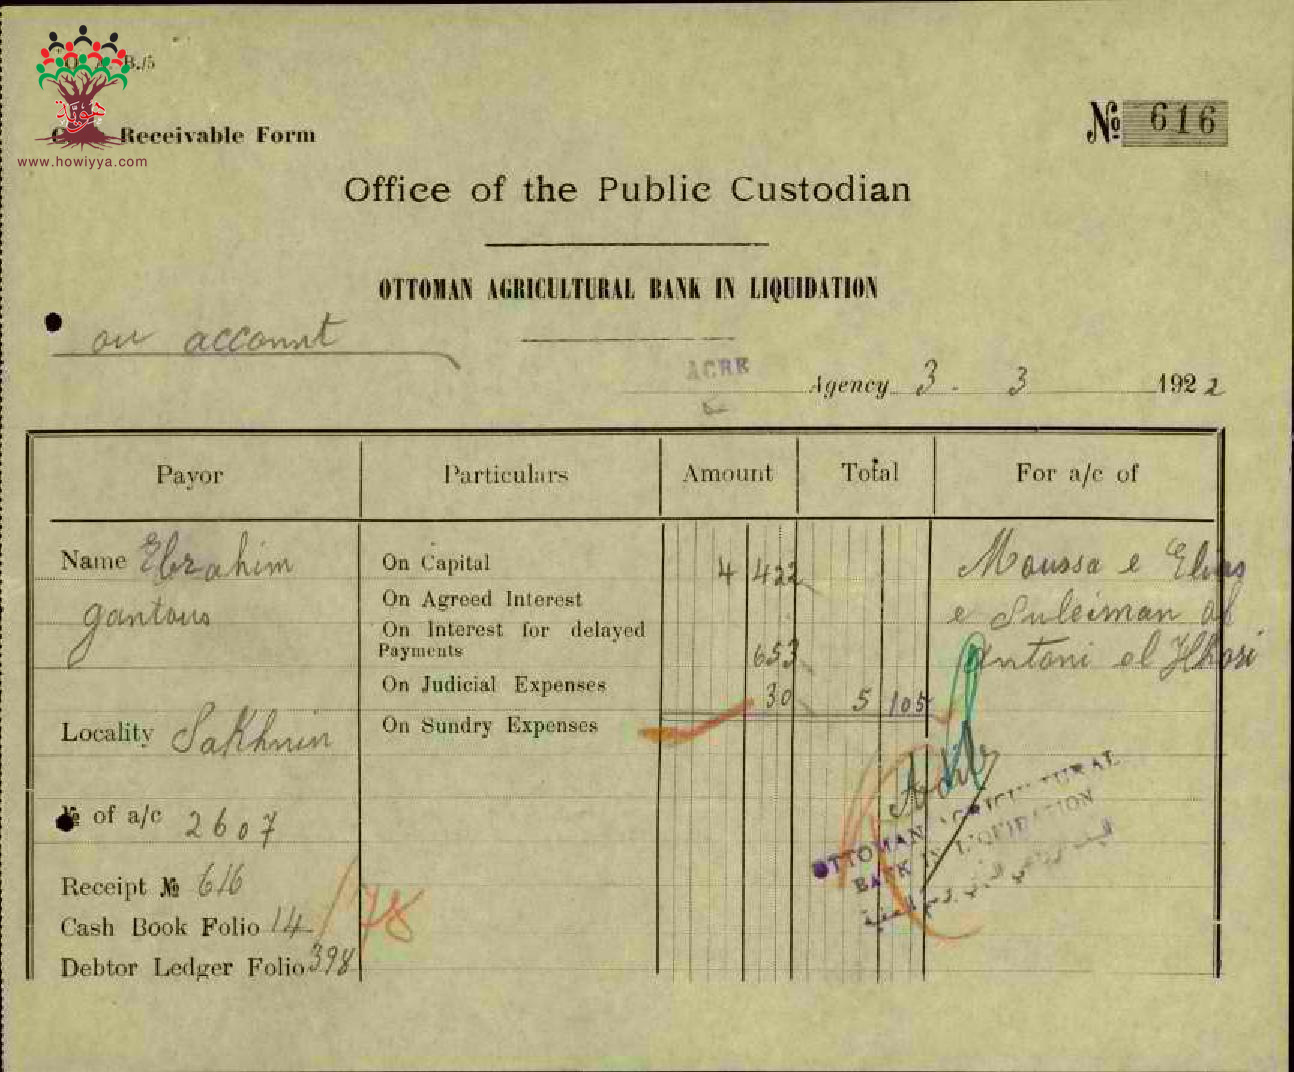 B./5
هوية
www.howiyya.com
Receivable Form
№ 616
Office of the Public Custodian
OTTOMAN AGRICULTURAL BANK IN LIQUIDATION
on account
ACRE Agency 3. 3 1922
Payor Particulars Amount Total For a/c of
Name Ebrahim
gantous
On Capital 4 422
On Agreed Interest
On Interest for delayed
Payments 653
On Judicial Expenses 30 5 105
On Sundry Expenses
Moussa e Elias
e Suleiman of
Antoni el
Locality Sakhnin
№ of a/c 2607
Receipt № 616
Cash Book Folio 14
78
Debtor Ledger Folio 398
OTTOMAN AGRICULTURAL
BANK IN LIQUIDATION